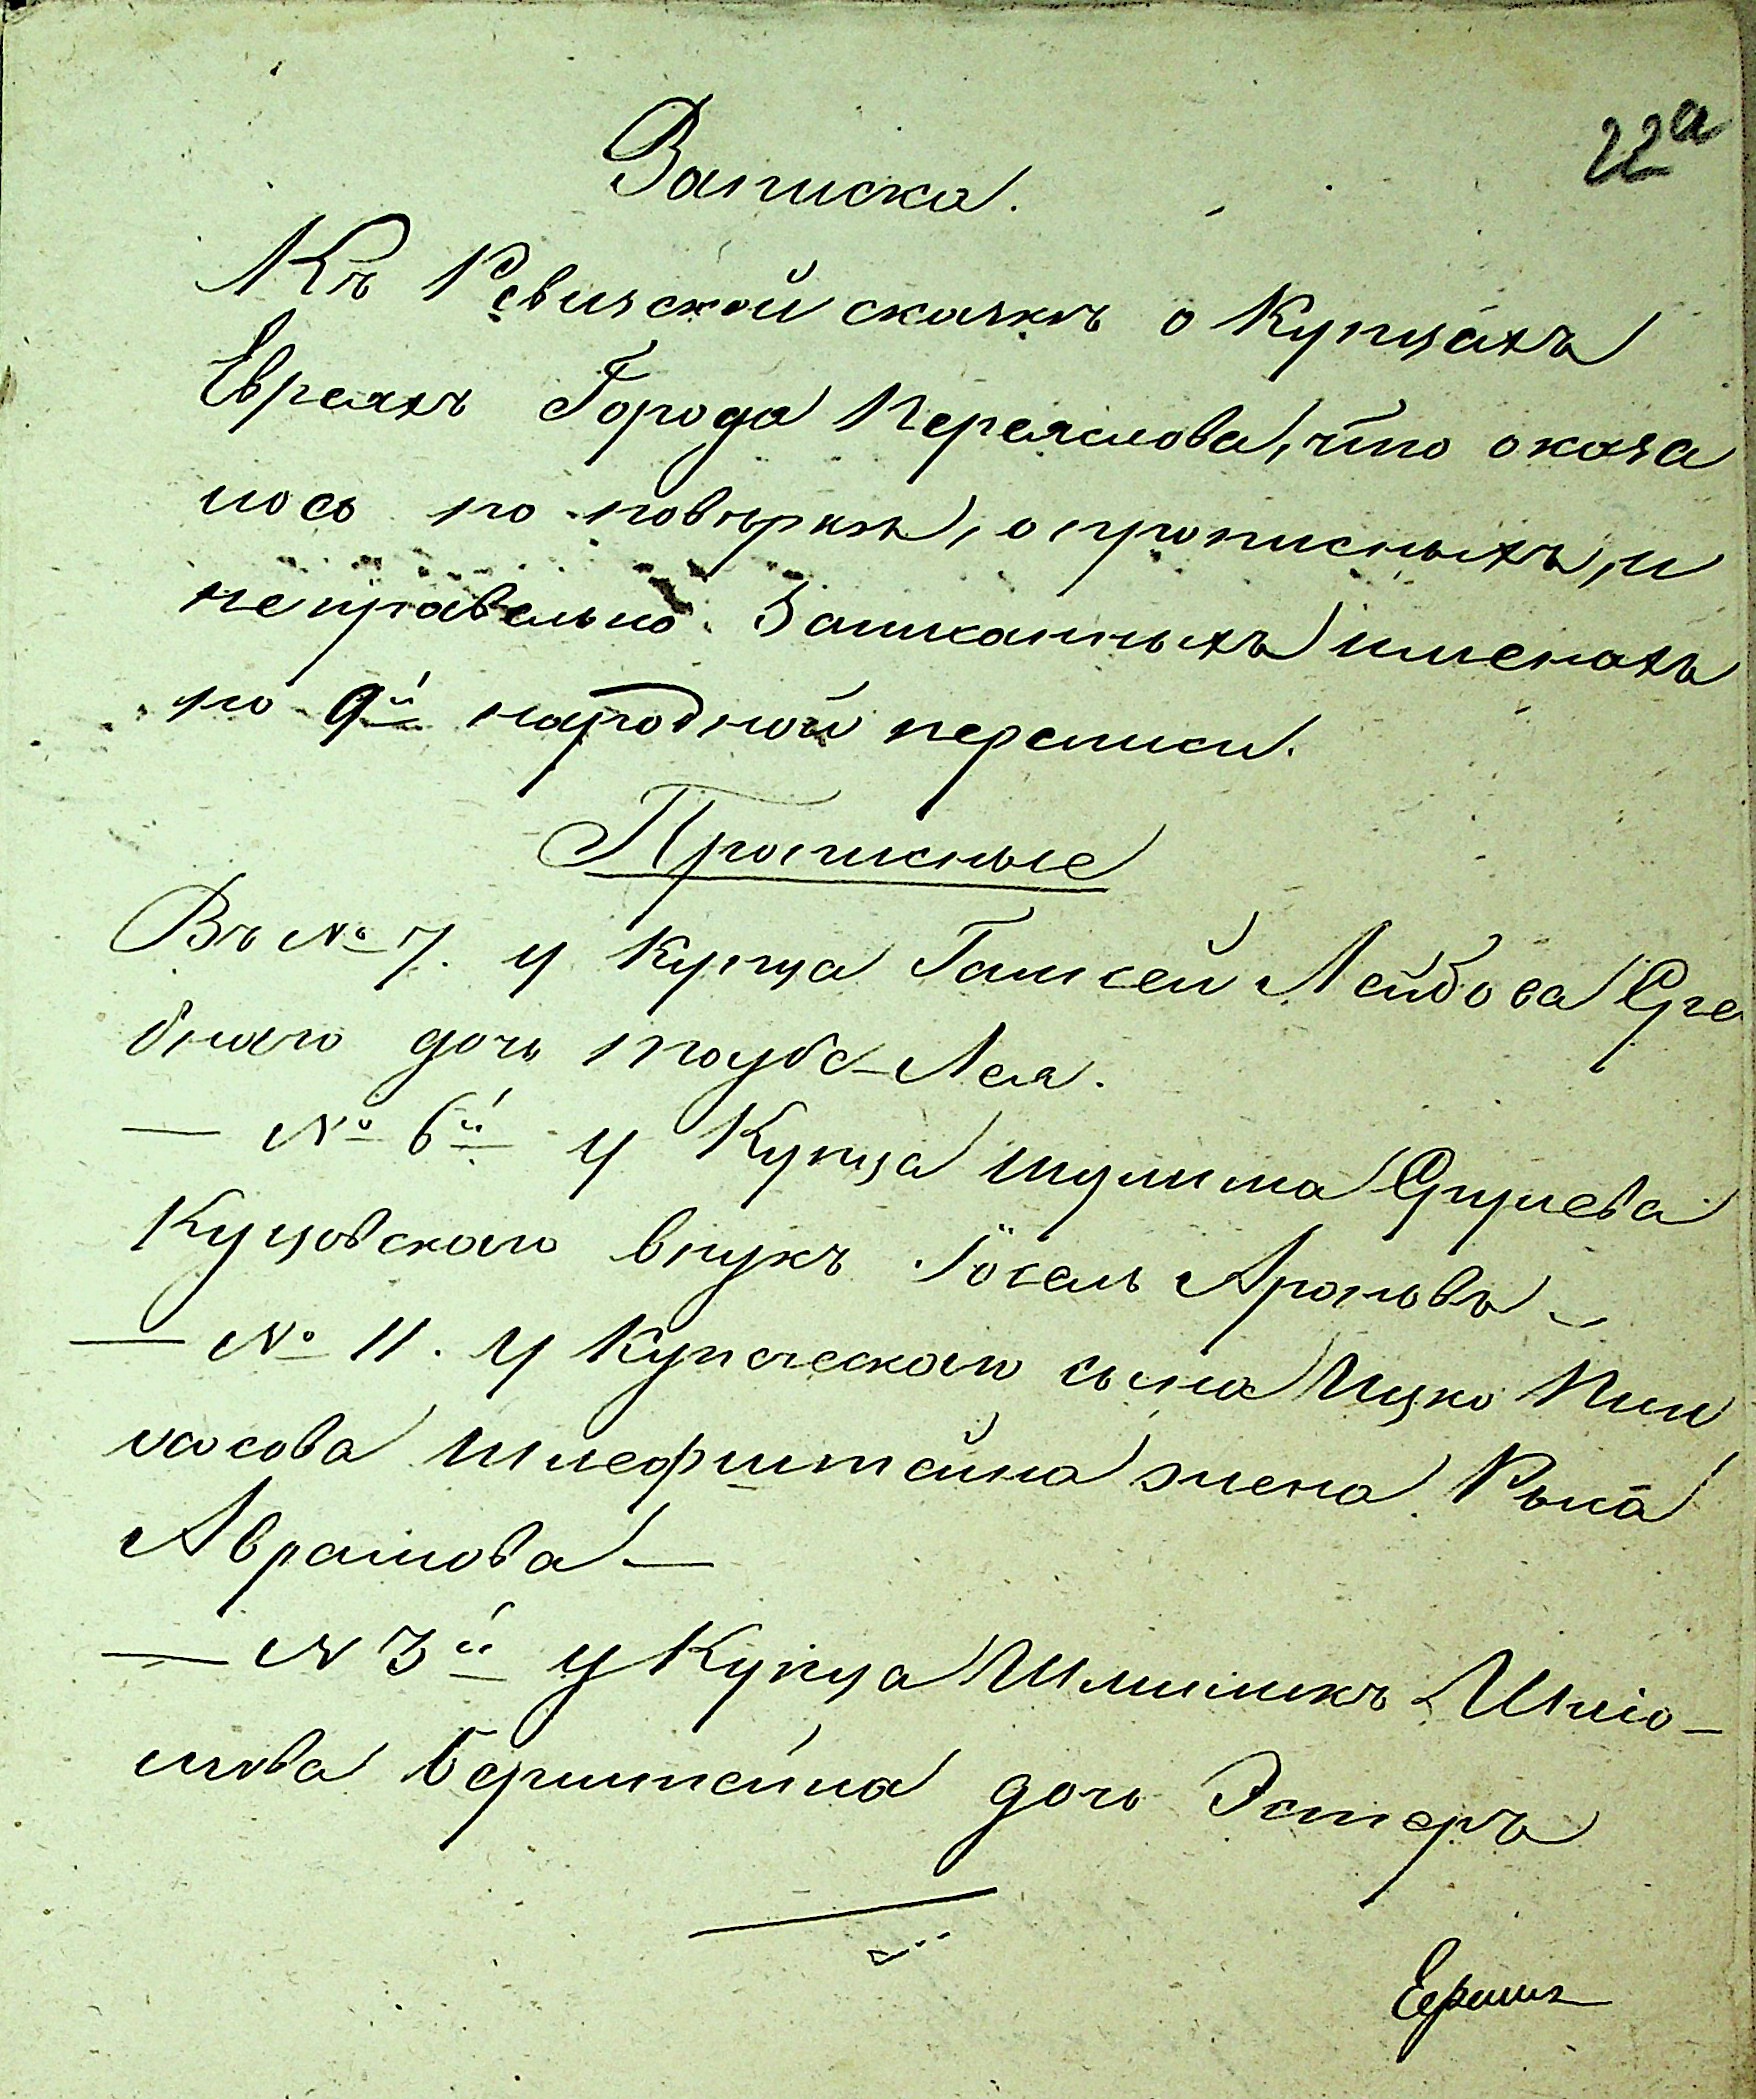 22а
Записка.
Къ Ревизской сказкѣ о Купцахъ
Евреяхъ Города Переяслова, что оказа
лось по повѣркѣ, о прописныхъ, и
неправельно Записанныхъ именахъ
по 9й народной переписи.
Прописные
Въ № 7. у Купца Гамшей Лейбова Сре
бнаго дочь Таубе-Лея.
— № 6й у Купца Шулима Сруле́ва
Куцовскаго внукъ Іосель Ароновъ
— № 11. У Купеческаго сына Ицко Пин
хасова Шлефштейна жена Рыса
Аврамова —
— № 3й у Купца Шлиомкъ Шліо-
мова Берштейна дочь Эстеръ